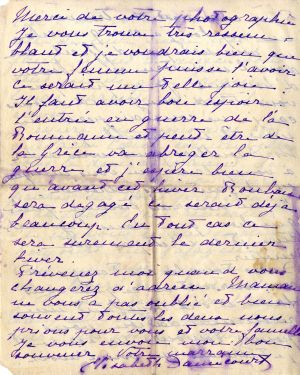 Merci de votre photographie
Je vous trouve très ressem-
blant et je voudrais bien que
votre femme puisse l'avoir
ce serait une telle joie.
Il faut avoir bon espoir
l'entrée en guerre de la
Roumanie et peut être de
la Grèce va abréger la
guerre et j'espère bien
que avant cet hiver Roubaix
sera dégagé ce serait déjà
beaucoup. En tout cas ce
sera surement le dernier
hiver.
Prévenez moi quand vous
changerez d'adresse. Maman
ne vous a pas oublié et bien
souvent toutes les deux nous
prions pour vous et votre famille
Je vous envoie mon bon
souvenir Votre marraine
Elisabeth